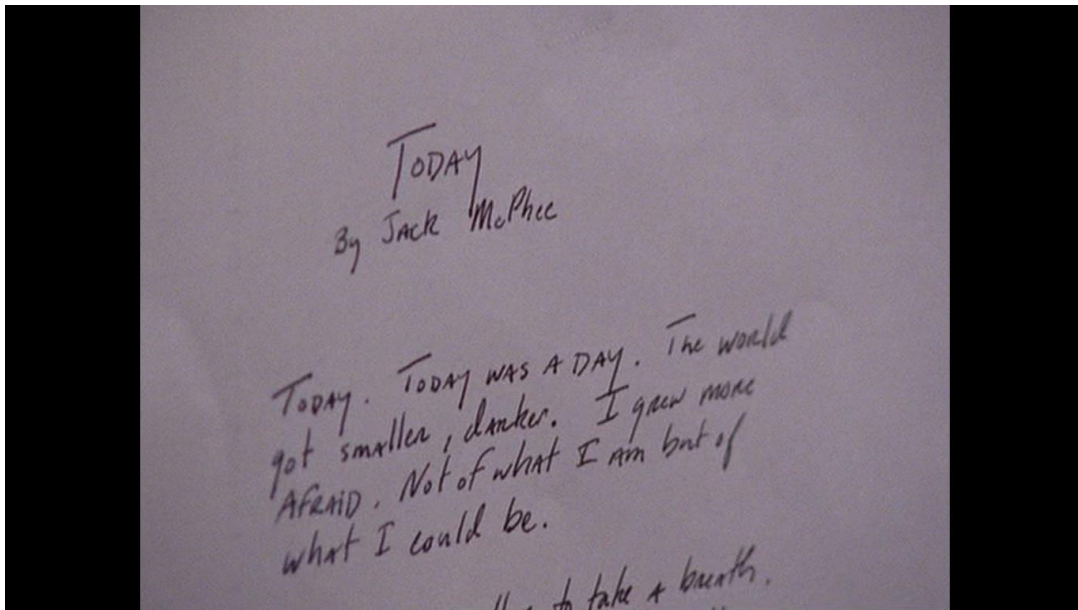 TODAY
By JACK McPhee
TODAY. TODAY WAS A DAY. The world
got smaller, darker. I grew more
AFRAID. Not of what I am but of
what I could be.
to take a breath.